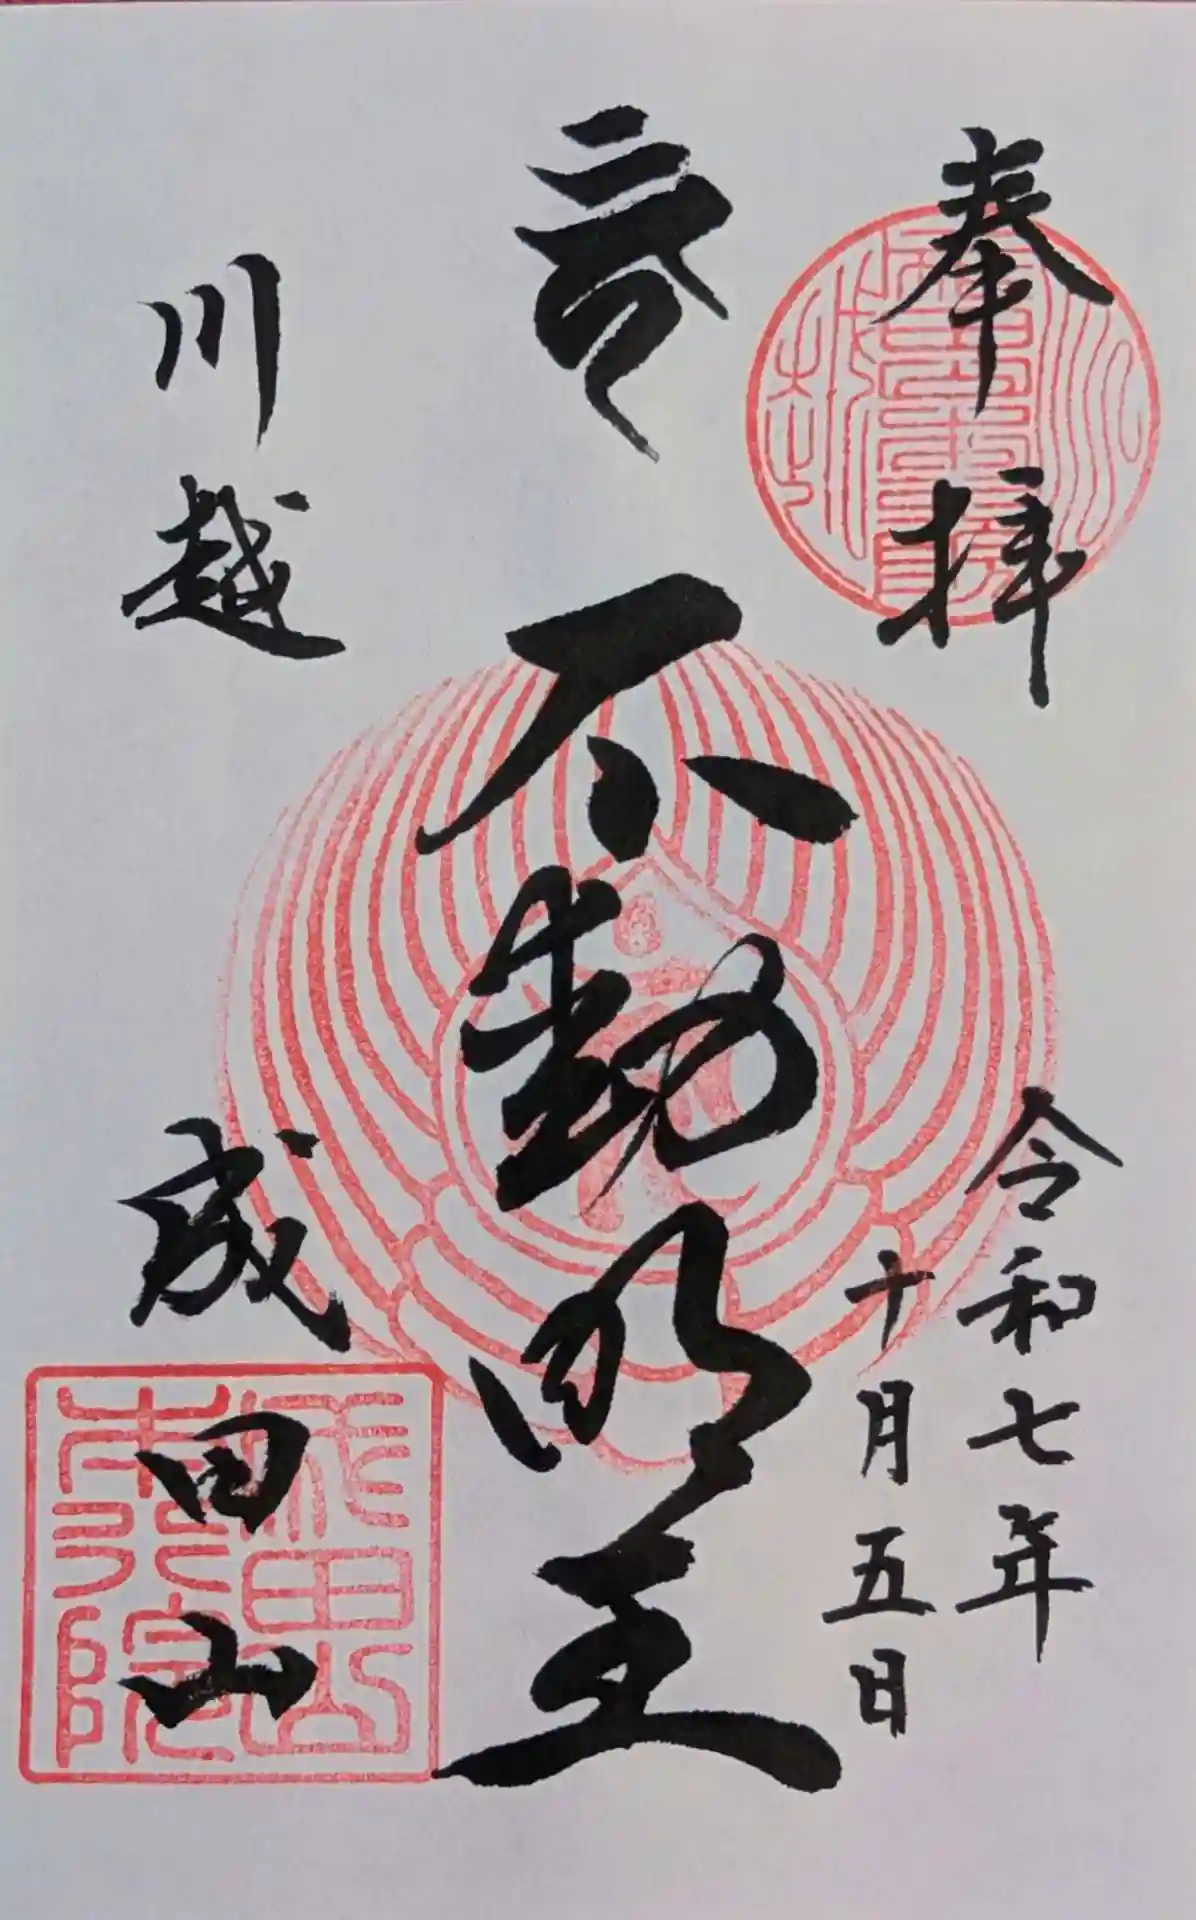 奉拝
令和七年
十月五日
不動明王
川越
成田山
成田山
本行院